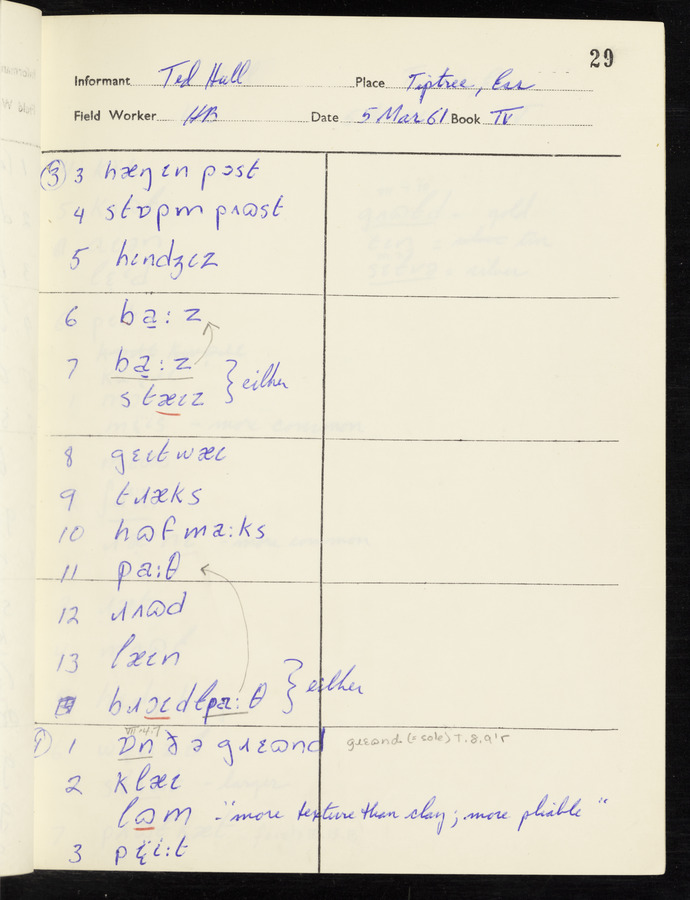 29
Informant Ted Hull Place Tiptree, Ess
Field Worker HB Date 5 Mar 61 Book IV
③ 3 hæŋɪn pɔst
4 stɒpm pʌɷst
5 hɪndʒɪz
6 ba̠ː z
7 ba̠ː z
stæɪz } either
8 gɛɪtwæɪ
9 tɹæks
10 hɷf maːks
11 paːθ
12 ɹʌɷd
13 læɪn
bɹɔɪdlpaːθ } either
① 1 ɒn ðə gɹɛɷnd gɹɛɷnd (= sole) T. 8. 9'r
2 klæɪ
lɷm - "more texture than clay; more pliable"
3 pɪ̈iːt